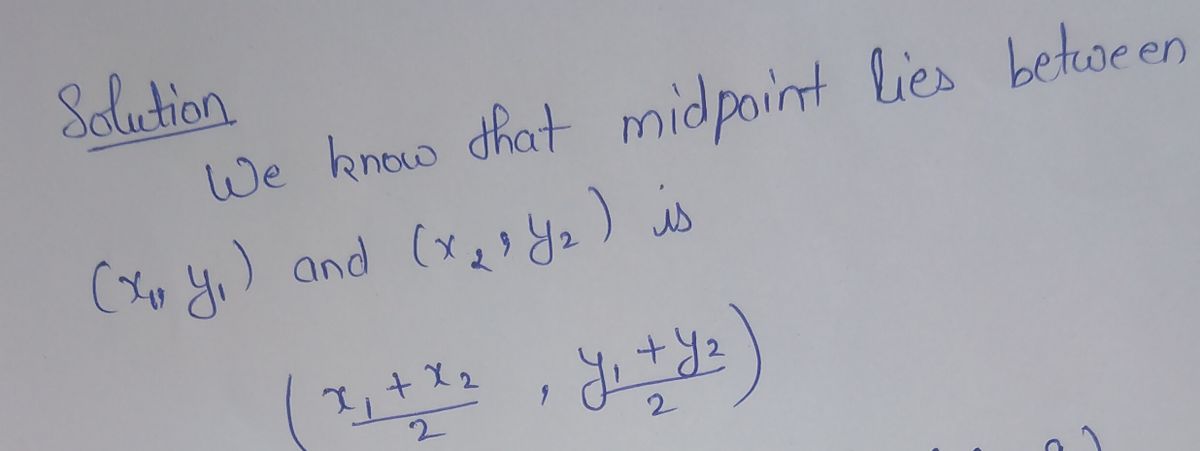 Solution
We know that midpoint lies between
(x₁, y₁) and (x₂, y₂) is
(x₁ + x₂ / 2 , y₁ + y₂ / 2)